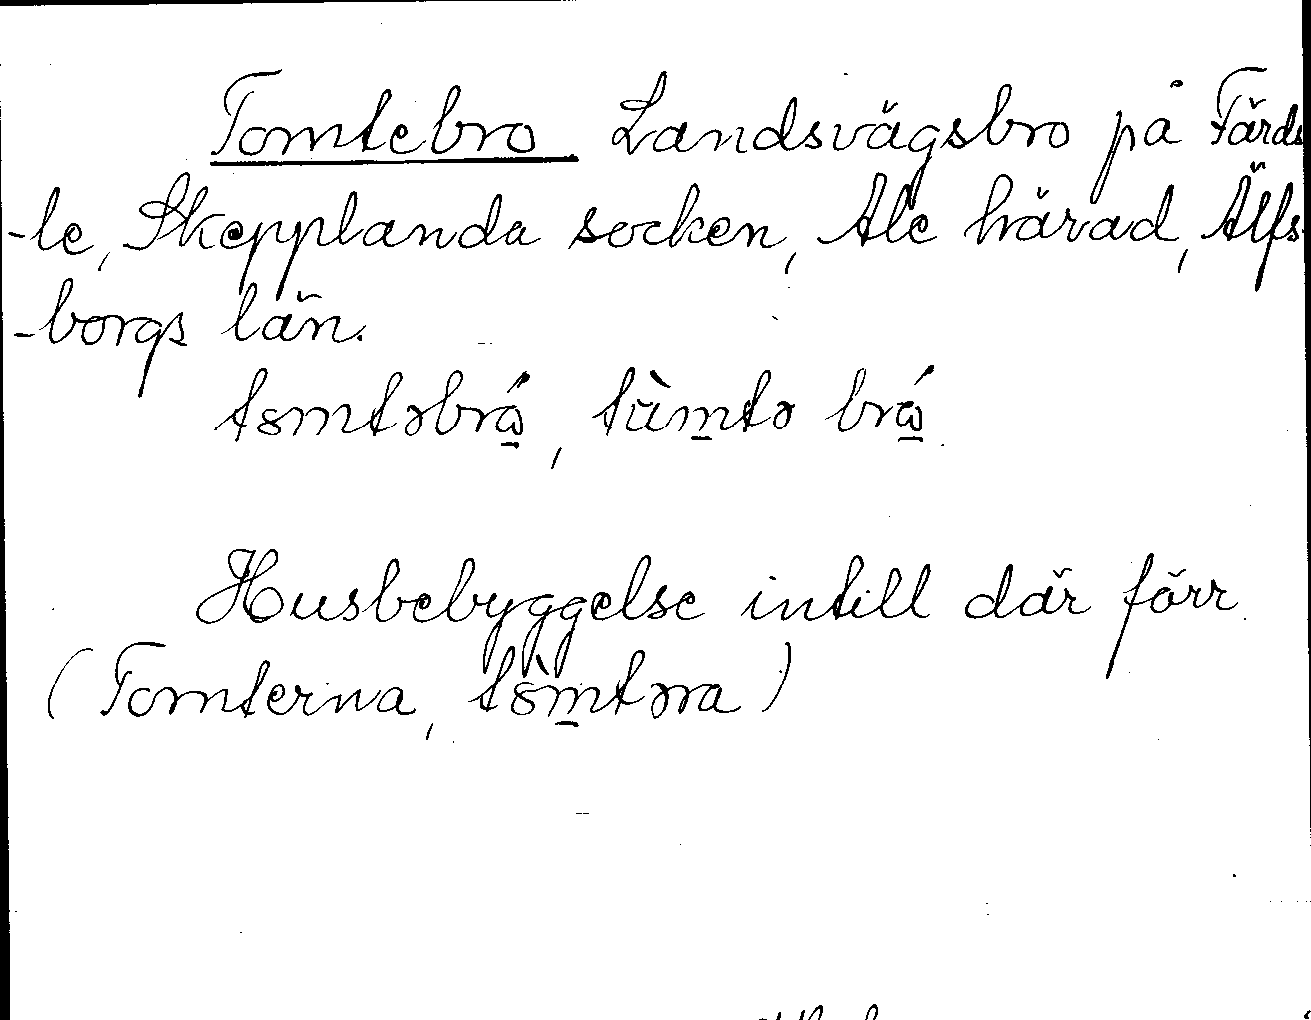 Tomtebro Landsvägsbro på Färds
-le, Skepplanda socken, Ale härad, Älfs-
-borgs län.
tsmtəbrά̱, tùm̱tə brά̱
Husbebyggelse intill där förr
(Tomterna, ts̀m̱təra)